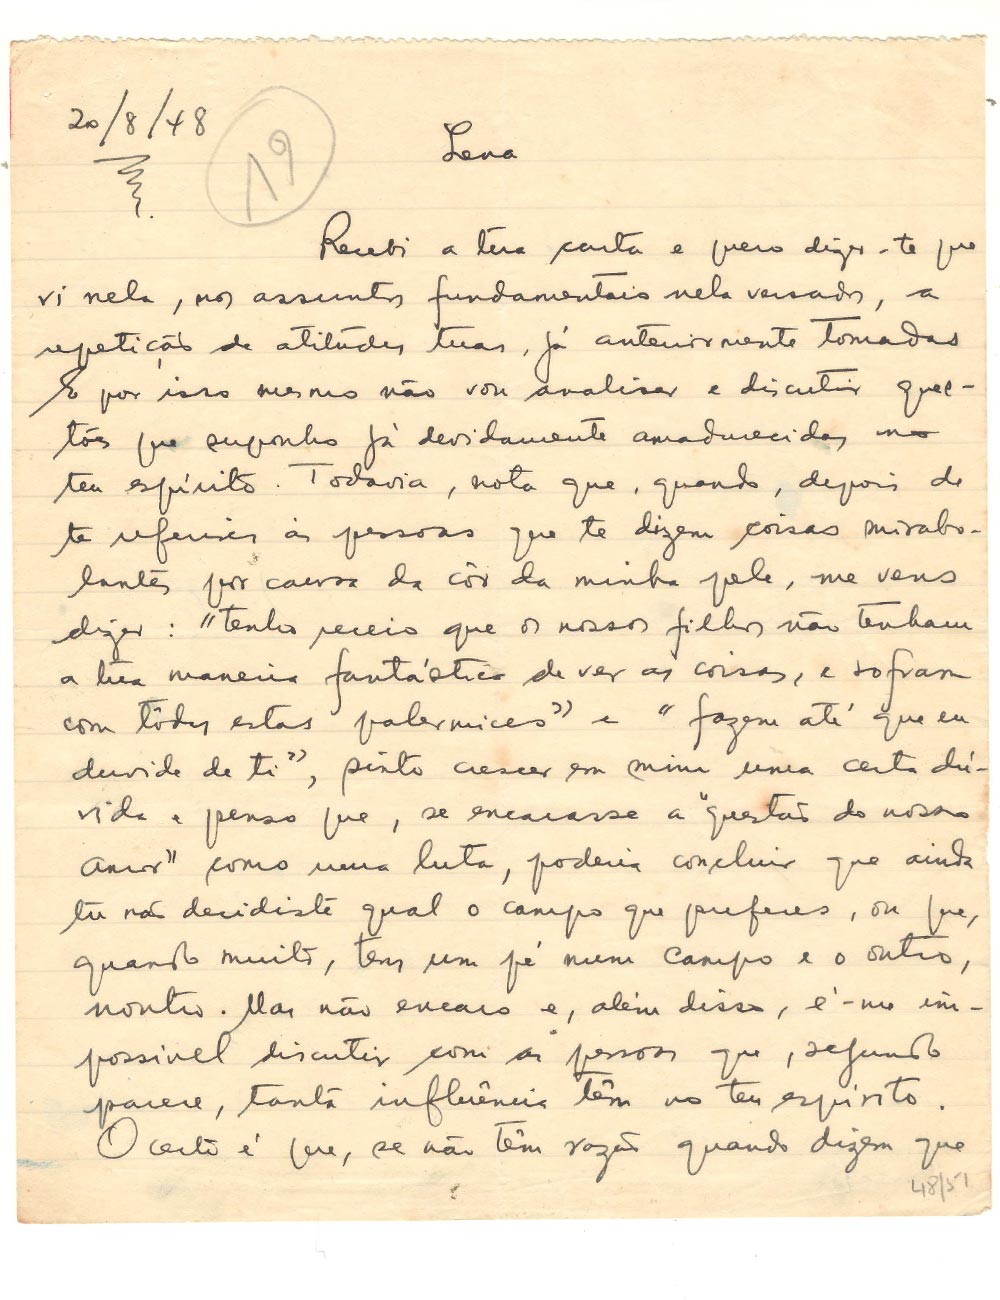 20/8/48
19
Lena
Recebi a tua carta e quero dizer-te que
vi nela, nos assuntos fundamentais nela versados, a
repetição de atitudes tuas, já anteriormente tomadas
E por isso mesmo não vou analisar e discutir ques-
tões que suponho já devidamente amadurecidas no
teu espírito. Todavia, nota que, quando, depois de
te referires às pessoas que te dizem coisas mirabo-
lantes por causa da côr da minha pele, me vens
dizer: "tenho receio que os nossos filhos não tenham
a tua maneira fantástica de ver as coisas, e sofram
com tôdas estas palermices" e "fazem até que eu
duvide de ti", sinto crescer em mim uma certa dú-
vida e penso que, se encarasse a "questão do nosso
amor" como uma luta, poderia concluir que ainda
tu não decidiste qual o campo que preferes, ou que,
quando muito, tens um pé num campo e o outro,
noutro. Mas não encaro e, além disso, é-me im-
possível discutir com as pessoas que, segundo
parece, tanta influência têm no teu espírito.
O certo é que, se não têm razão quando dizem que
48/51